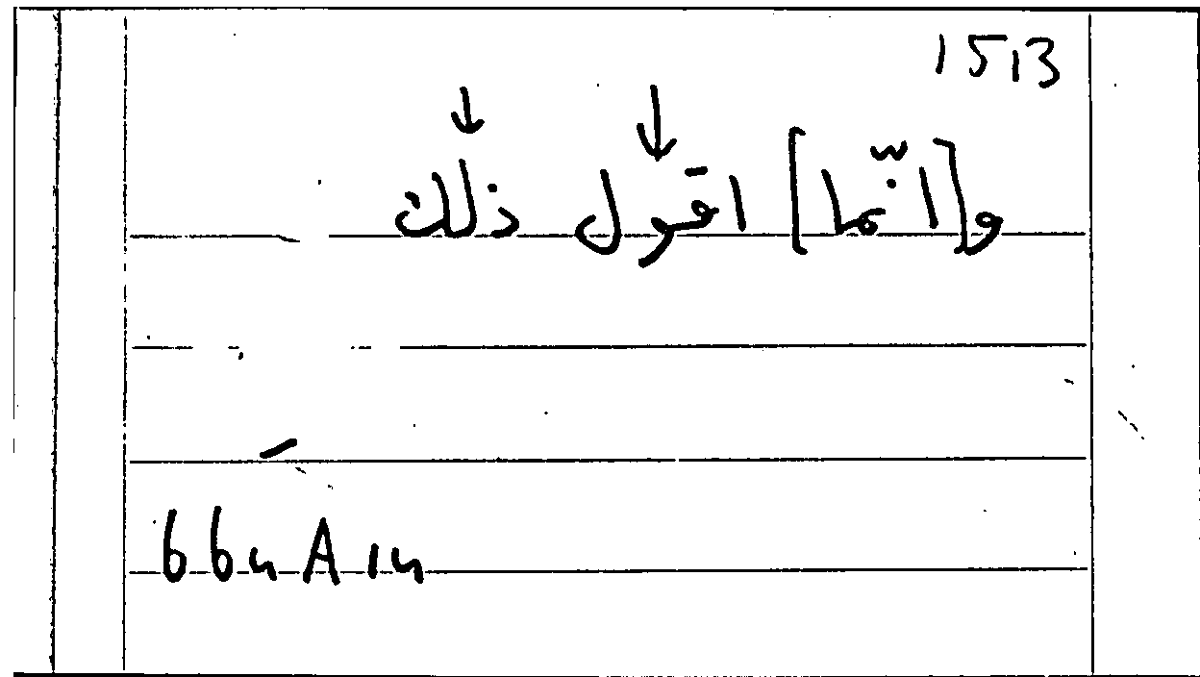 1513
و[انّما] اقول ذلك
664 A 14